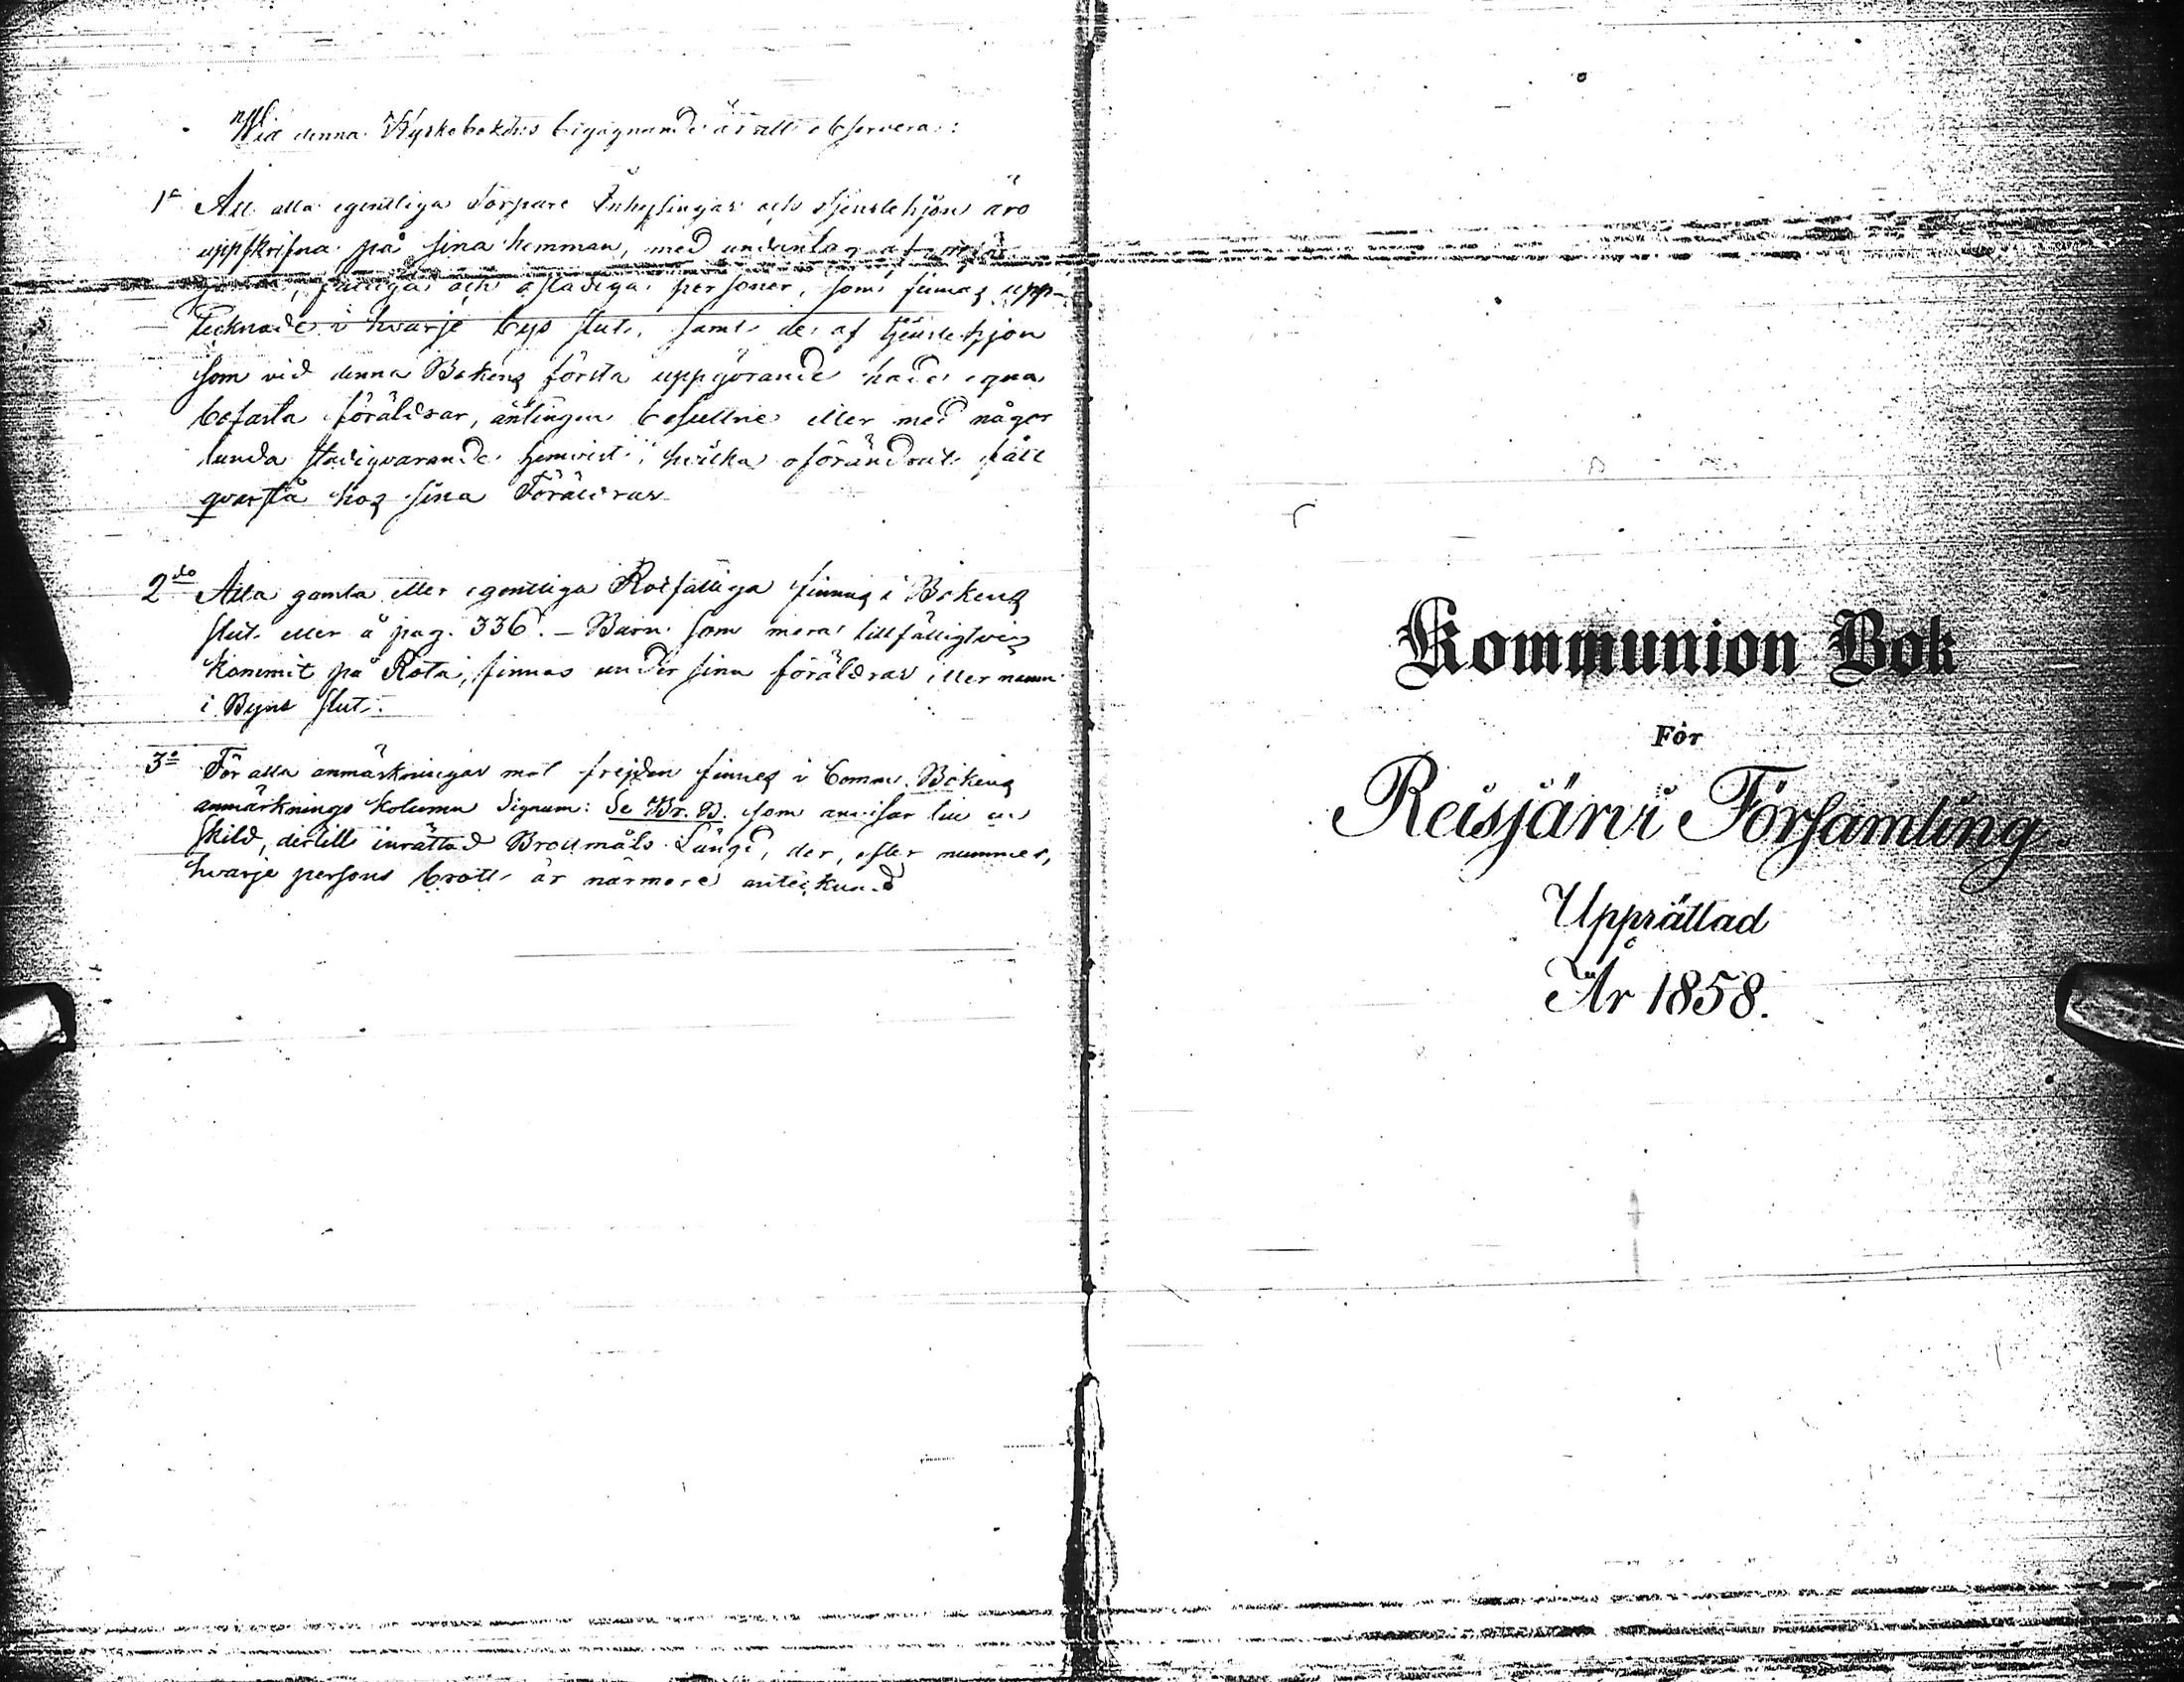 Wid denna Kyrkobokens begagnande är att observera:
1o Att alla egentliga Torpare Inhysingar och tjenstehjon äro
uppskrifna på sina hemman, med undantag af
fattiga och ostadiga personer, som finnas upp-
tecknade i hwarje bys slut, samt de af tjenstehjon
som vid denna Bokens första uppgörande hade egna
bofasta föräldrar, antingen besuttne eller med någor
lunda stadigvarande hemvist, hvilka oförändrat fått
qvarstå hos sina Föräldrar
2do Alla gamla eller egentliga Rotfattiga finnas i Bokens
slut eller å pag. 336. – Barn som mera tillfälligtvis
kommit på Rota, finnas under sina föräldrars eller namn
i Byns slut.
3o För alla anmärkningar mot frejden finnes i Comm. Bokens
anmärknings kolumn Signum: Se Br. B. som anvisar till en
skild, dertill inrättad Brottmåls Längd, der, efter nummer,
hwarje persons brott är närmare antecknad
Kommunion Bok
För
Reisjärvi Församling.
Upprättad
År 1858.